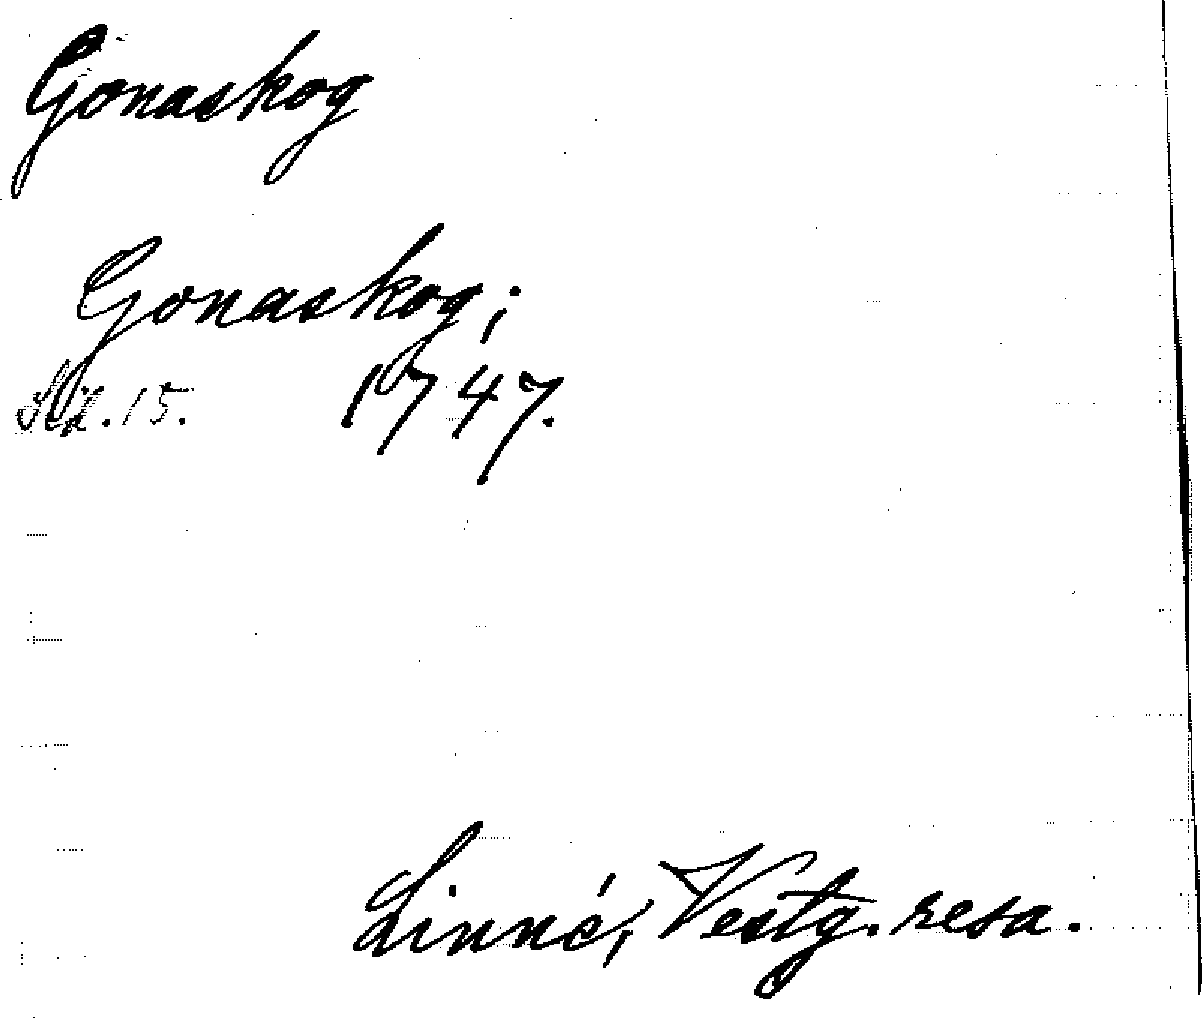 Gonaskog
Gonaskog;
Sid. 15. 1747.
Linné, Vestg. resa.